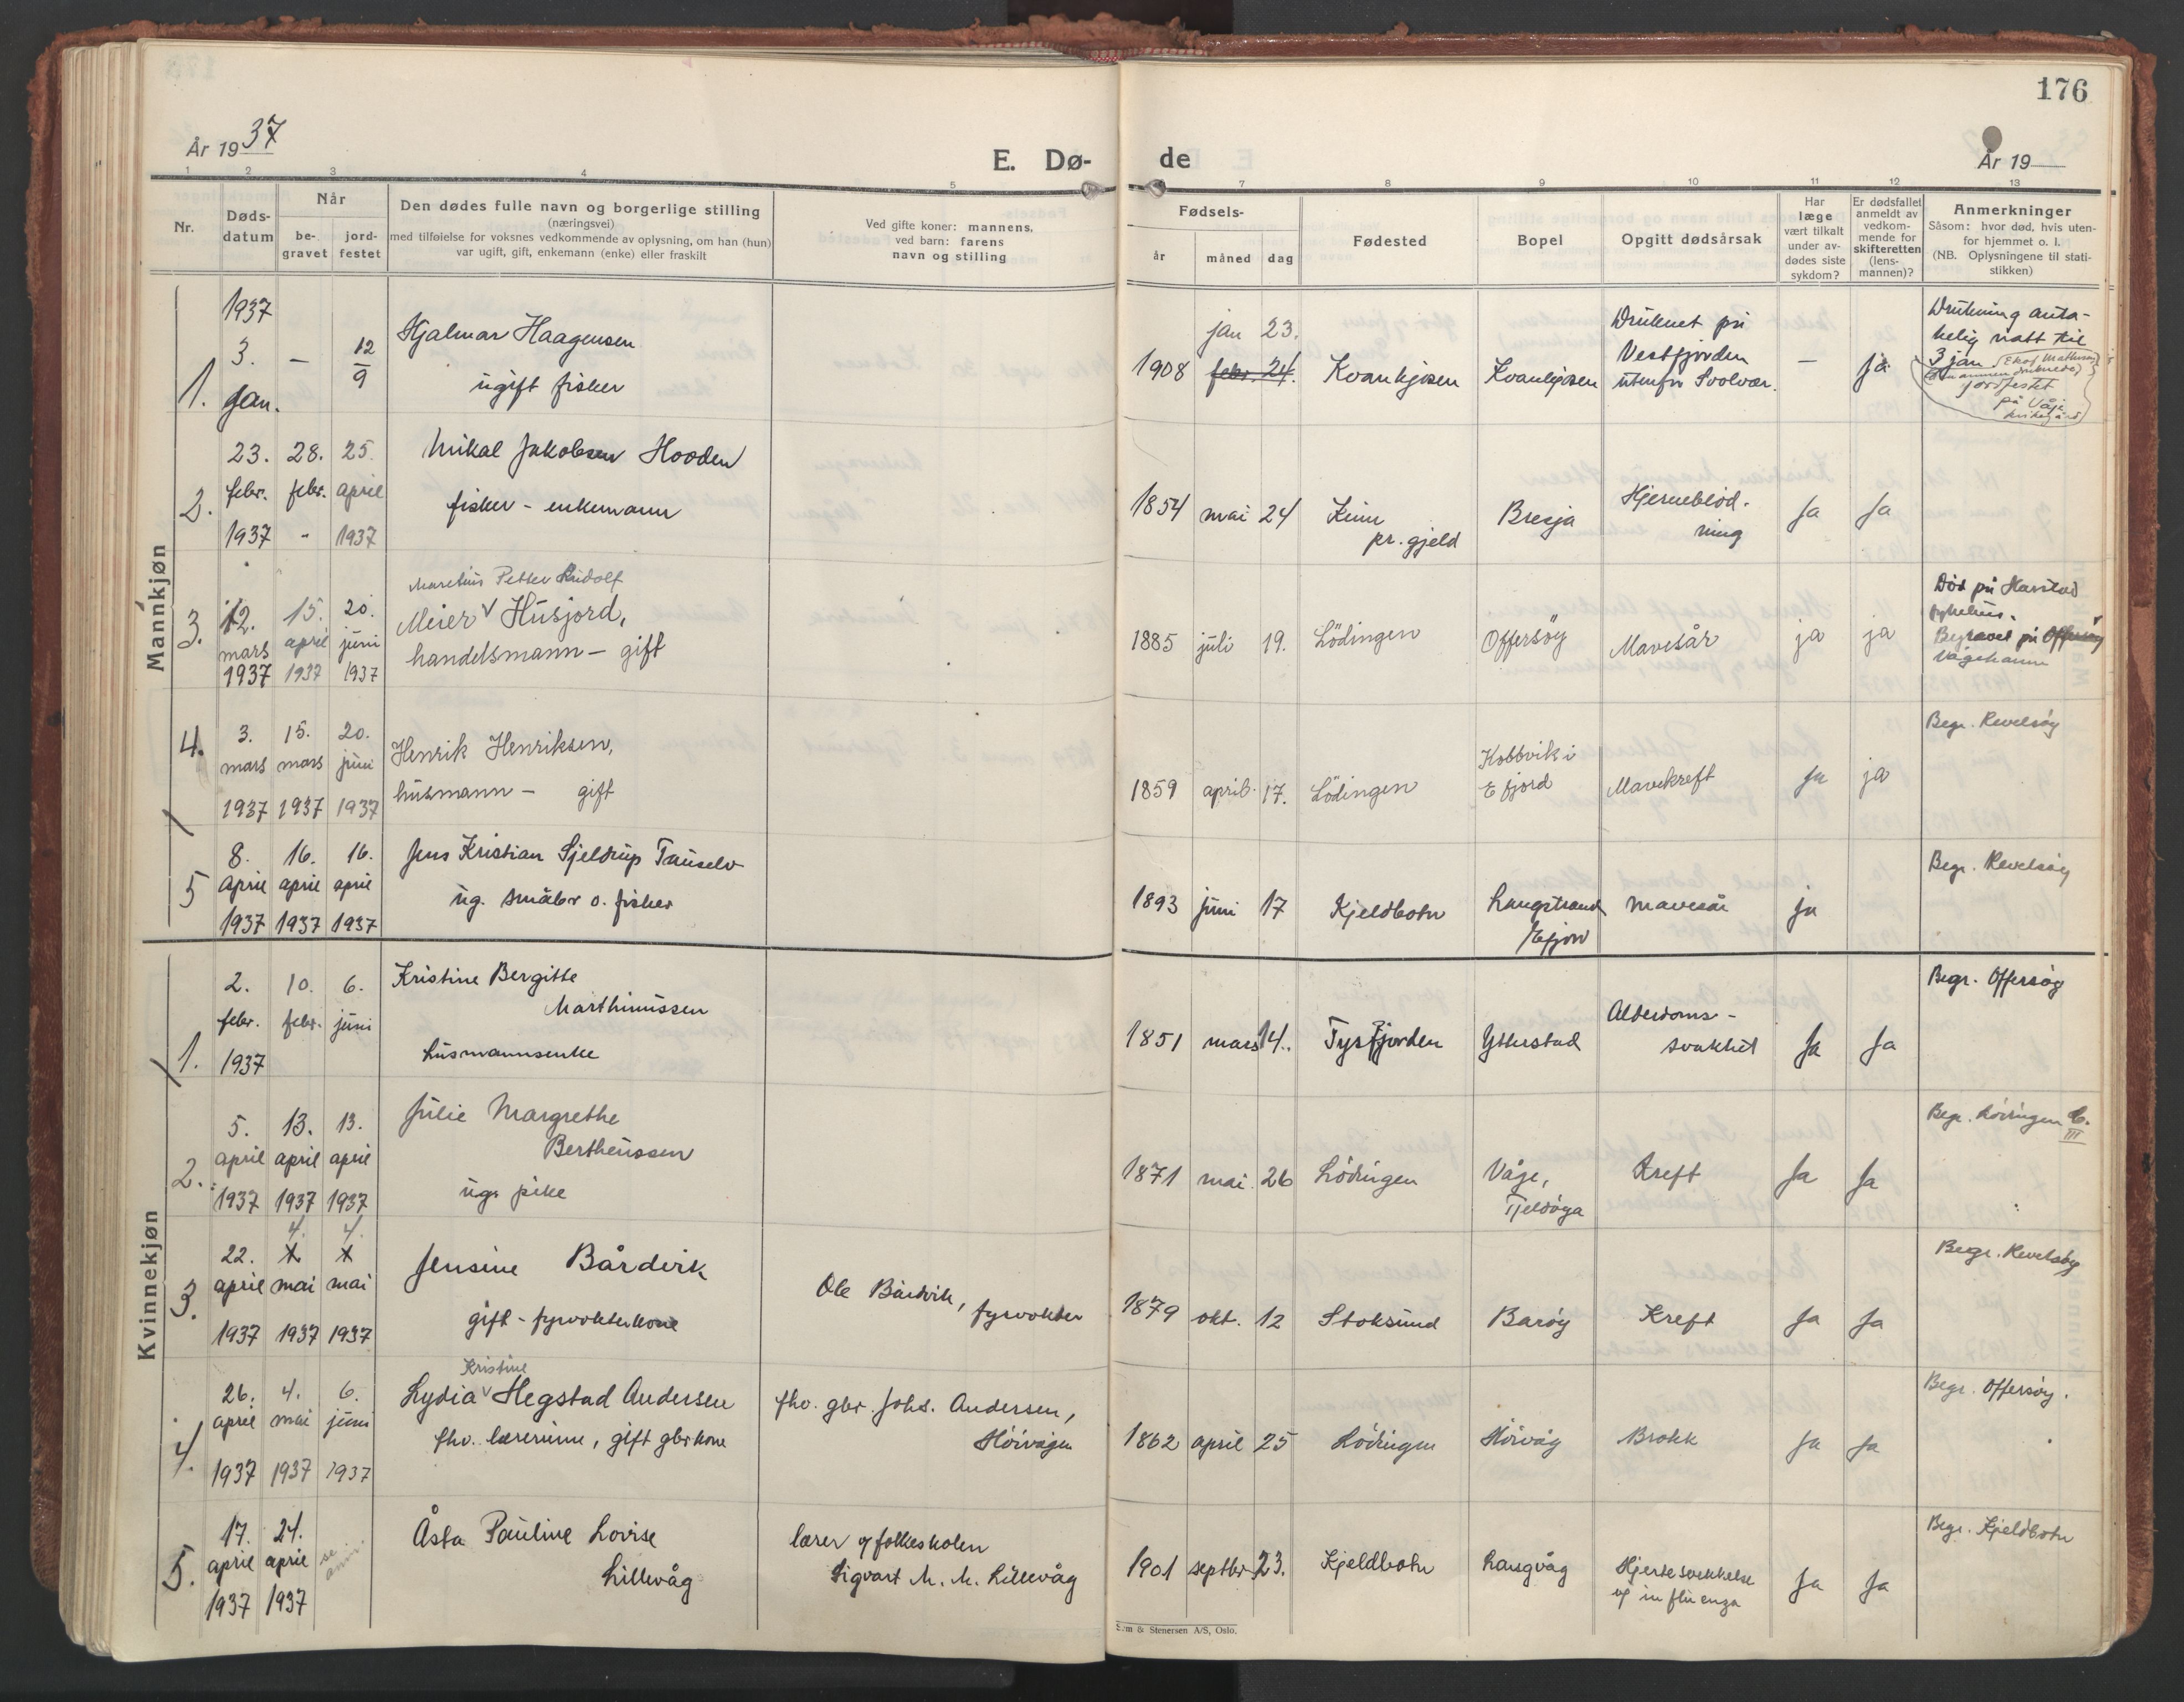 176
År 1937
E. Dø-
de
År 19
1
2
3
4
5
7
8
9
10
11
12
13
Nr.
Døds-
datum
Når
be-
gravet
jord-
festet
Den dødes fulle navn og borgerlige stilling
(næringsvei)
med tilføielse for voksnes vedkommende av oplysning, om han (hun)
var ugift, gift, enkemann (enke) eller fraskilt
Ved gifte koner: mannens,
ved barn: farens
navn og stilling
Fødsels-
år
måned
dag
Fødested
Bopel
Opgitt dødsårsak
Har
læge
vært tilkalt
under av-
dødes siste
sykdom?
Er dødsfallet
anmeldt av
vedkom-
mende for
skifteretten
(lens-
mannen)?
Anmerkninger
Såsom: hvor død, hvis uten-
for hjemmet o. l.
(NB. Oplysningene til stati-
stikken)
Mannkjøn
1.
1937
3.
jan.
—
12
9
Hjalmar Haagensen
ugift fisker
1908
jan 23.
febr. 24.
Kvankjosen
Kvankjosen
Druknet på
Vestfjorden
utenfor Svolvær.
—
ja
Drukning anta-
kelig natt til
3 jan
jordfestet
på Våje
2.
23.
febr.
1937
28.
febr.
"
25.
april
1937
Mikal Jakobsen Hooden
fisker - enkemann
1854 mai 24
Kinn
pr. gjeld
Bresja
Hjerneblød-
ning
Ja
Ja
3.
12.
mars
1937
15.
april
1937
20.
juni
1937
Marelius Petter Rudolf
Meier Husjord,
handelsmann — gift
1885 juli 19.
Lödingen
Offersöy
Mavesår
ja
ja
Död på Harstad
sykehus.
Begravet på Offersöy
Vågehamn
4.
3.
mars
1937
15.
mars
1937
20.
juni
1937
Henrik Henriksen,
husmann — gift
1859 april 17.
Lödingen
Kobbvik i
Efjord
Mavekreft
Ja
ja
Begr. Revelsöy
5
8.
april
1937
16.
april
1937
16.
april
1937
Jens Kristian Sjeldrup Tauselv
ug. småbr o. fisker
1893 juni 17
Kjeldbotn
Langstrand
/Efjor
Mavesår
ja
Begr. Revelsöy
Kvinnekjøn
1.
2.
febr.
1937
10.
febr.
6.
juni
Kristine Bergitte
Marthinussen
husmannsenke
1851 mars 14.
Tysfjorden
Ytterstad
Alderdoms-
svakhet
Ja
Ja
Begr. Offersöy
2.
5.
april
1937
13.
april
1937
13.
april
1937
Julie Margrethe
Bertheussen
ug. pike
1871 mai 26
Lödingen
Våje,
Tjeldöya
Kreft
Ja
Ja
Begr. Lödingen
III
3.
22.
april
1937
4.
mai
1937
4.
mai
1937
Jensine Bårdvik
gift - fyrvokterkone
Ole Bårdvik, fyrvokter
1879 okt. 12
Stoksund
Baröy
Kreft
Ja
Ja
Begr. Revelsöy
4.
26.
april
1937
4.
mai
1937
6.
juni
1937
Kristine
Lydia Hegstad Andersen
fhv. lærerinne, gift gbrkone
fhv. gbr. Johs. Andersen,
Hörvågen
1862 april 25
Lödingen
Hörvåg
Brokk
Ja
Ja
Begr. Offersöy.
5.
17.
april
1937
24.
april
1937
se
anm.
Åsta Pauline Lovise
Lillevåg
lærer i folkeskolen
Sigvart M. M. Lillevåg
1901 septbr 23.
Kjeldbotn
Langvåg
Hjertesvekkelse
og influenza
Ja
Ja
Begr. Kjeldbotn
Sem & Stenersen A/S, Oslo.